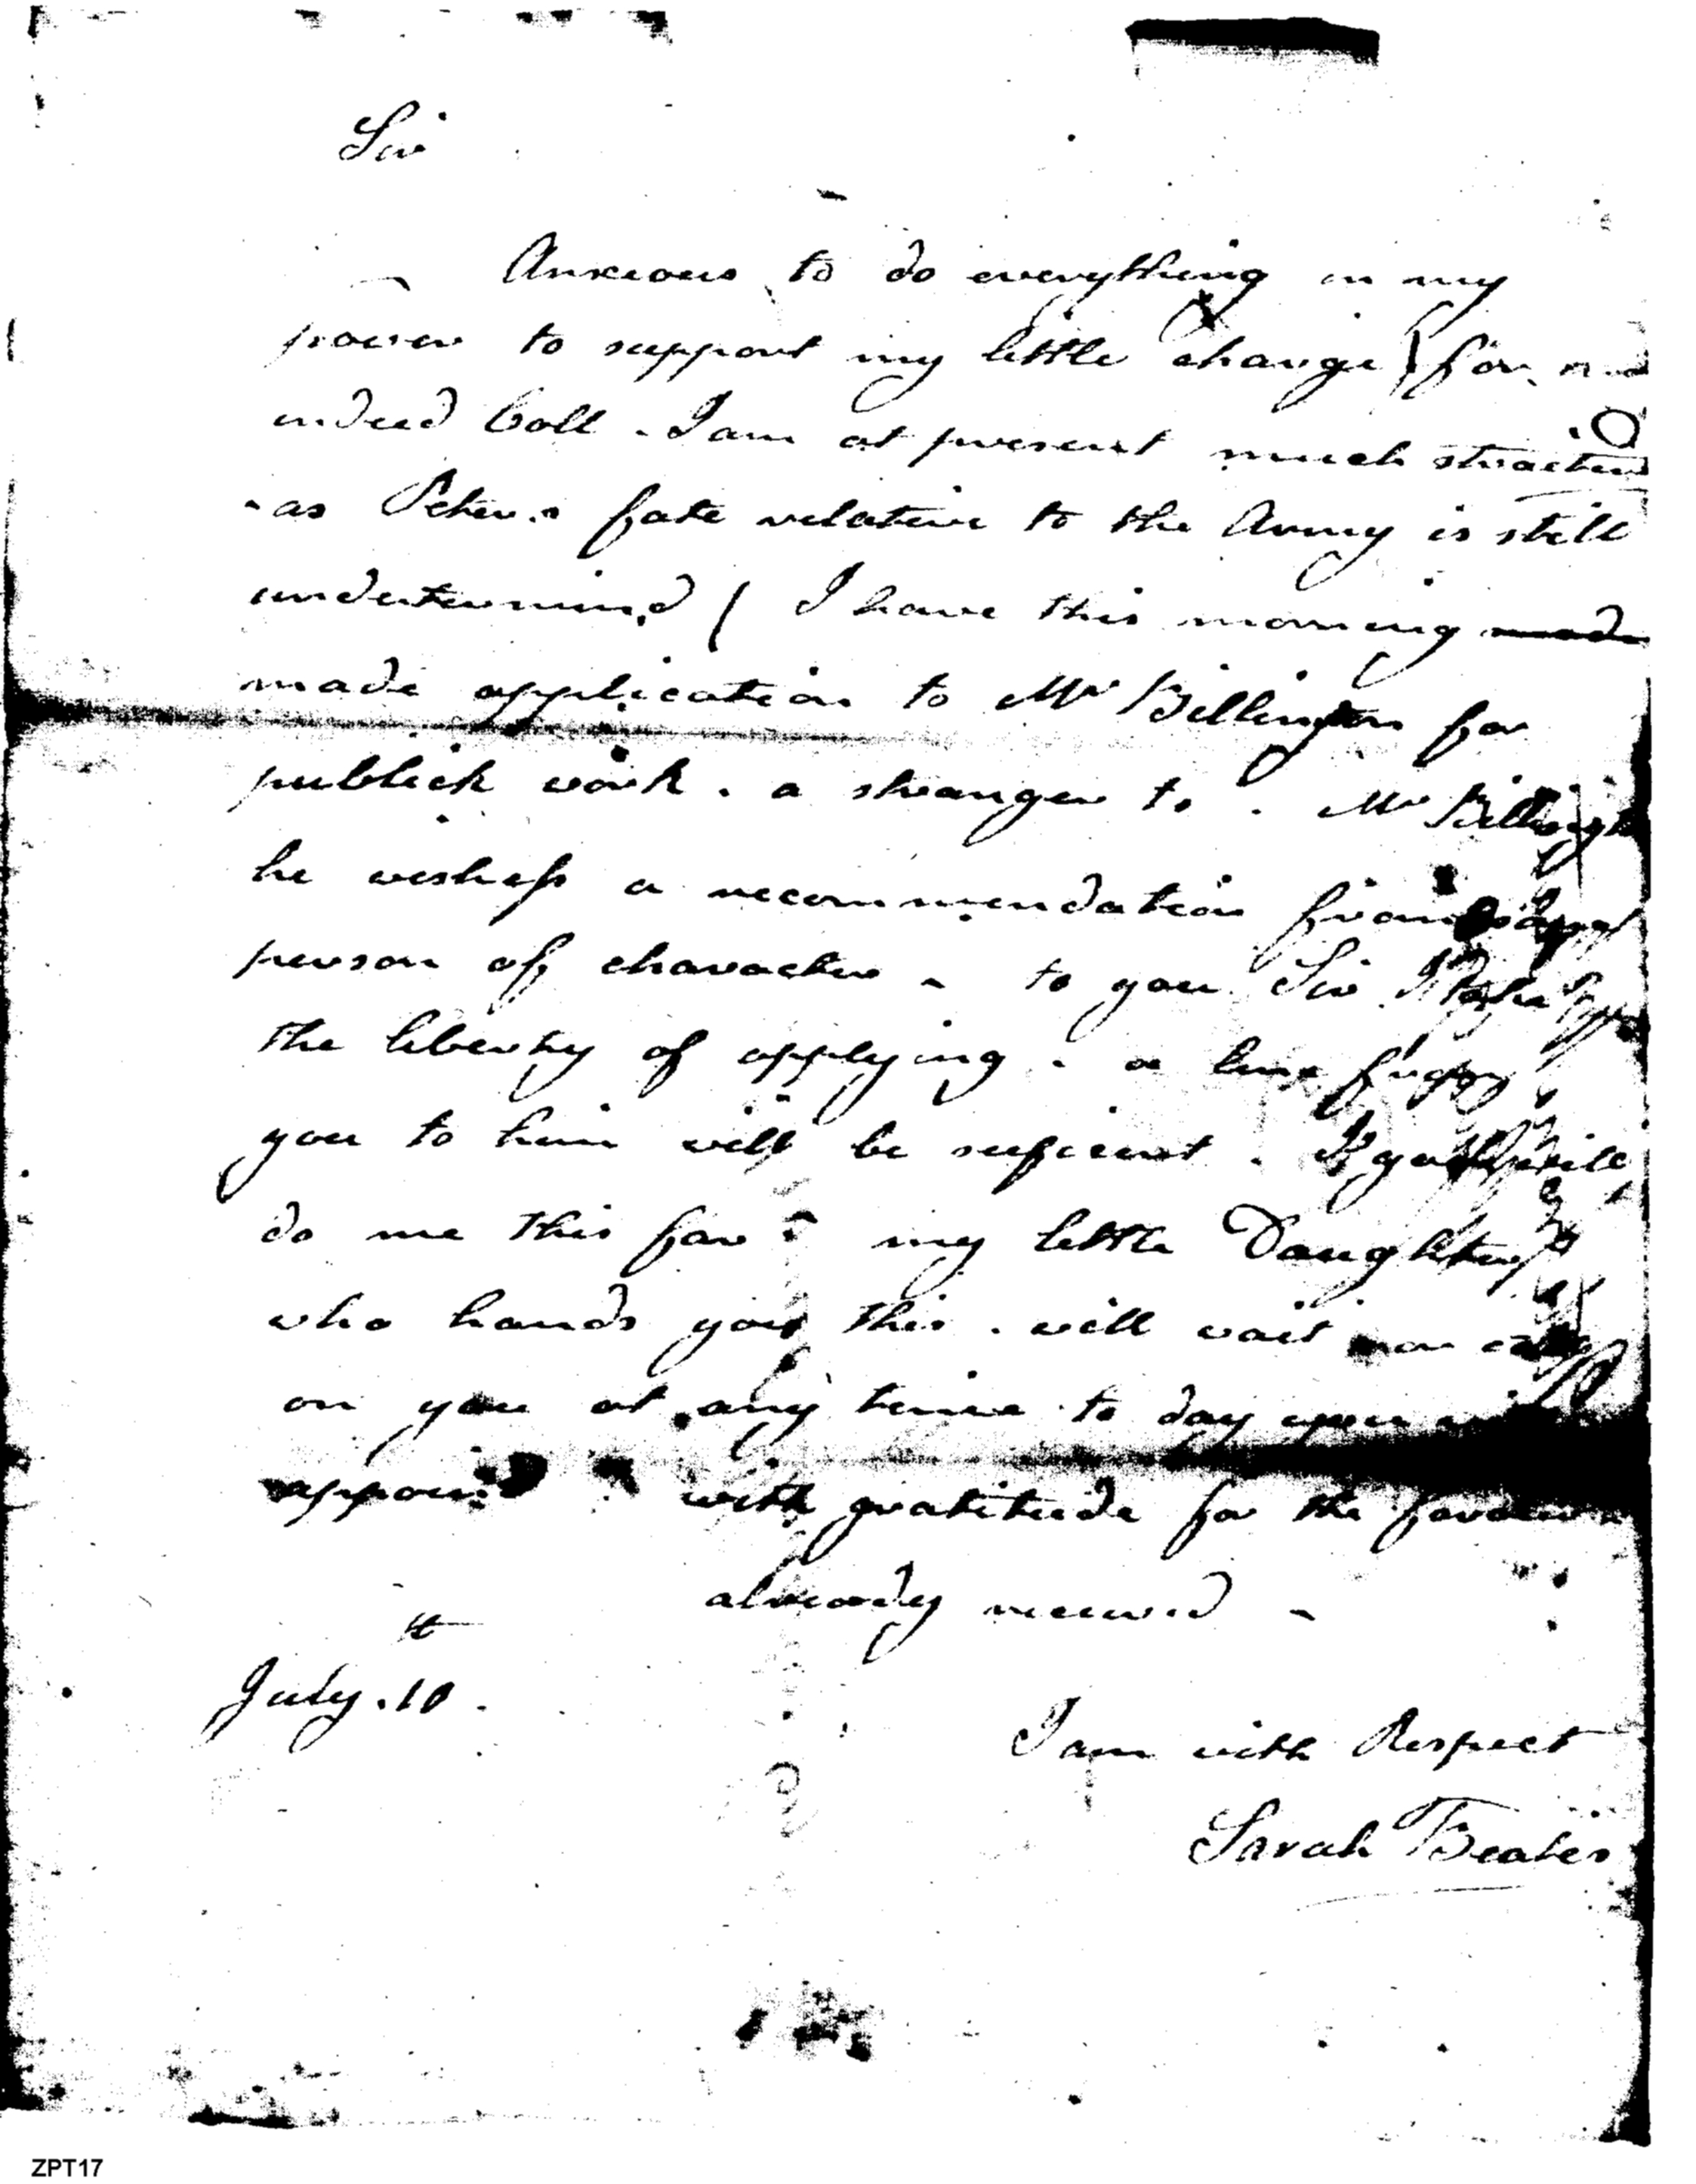 Sir
Anxious to do everything in my
power to support my little charge (for
indeed Coll. I am at present much straiten'd
as Peter.s fate relative to the Army is still
undetermin,d ( I have this morning made
made application to Mr Billington for
publick work. a stranger to. Mr Billingt
he wishess a recommendation from
person of character - to you Sir I take
the liberty of applying. a line from
you to him will be suficient. If you will
do me this favr my little Daughter
who hands you this. will wait or call
on you at any time to day you will
appoint with gratitude for the favours
already receiv.d -
July. 10th.
I am with Respect
Sarah Beates
ZPT17